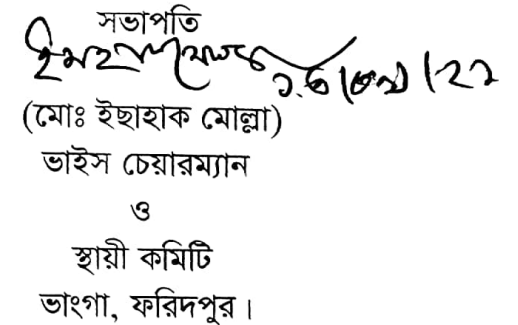 সভাপতি
(মোঃ ইছাহাক মোল্লা)
ভাইস চেয়ারম্যান
ও
স্থায়ী কমিটি
ভাংগা, ফরিদপুর।